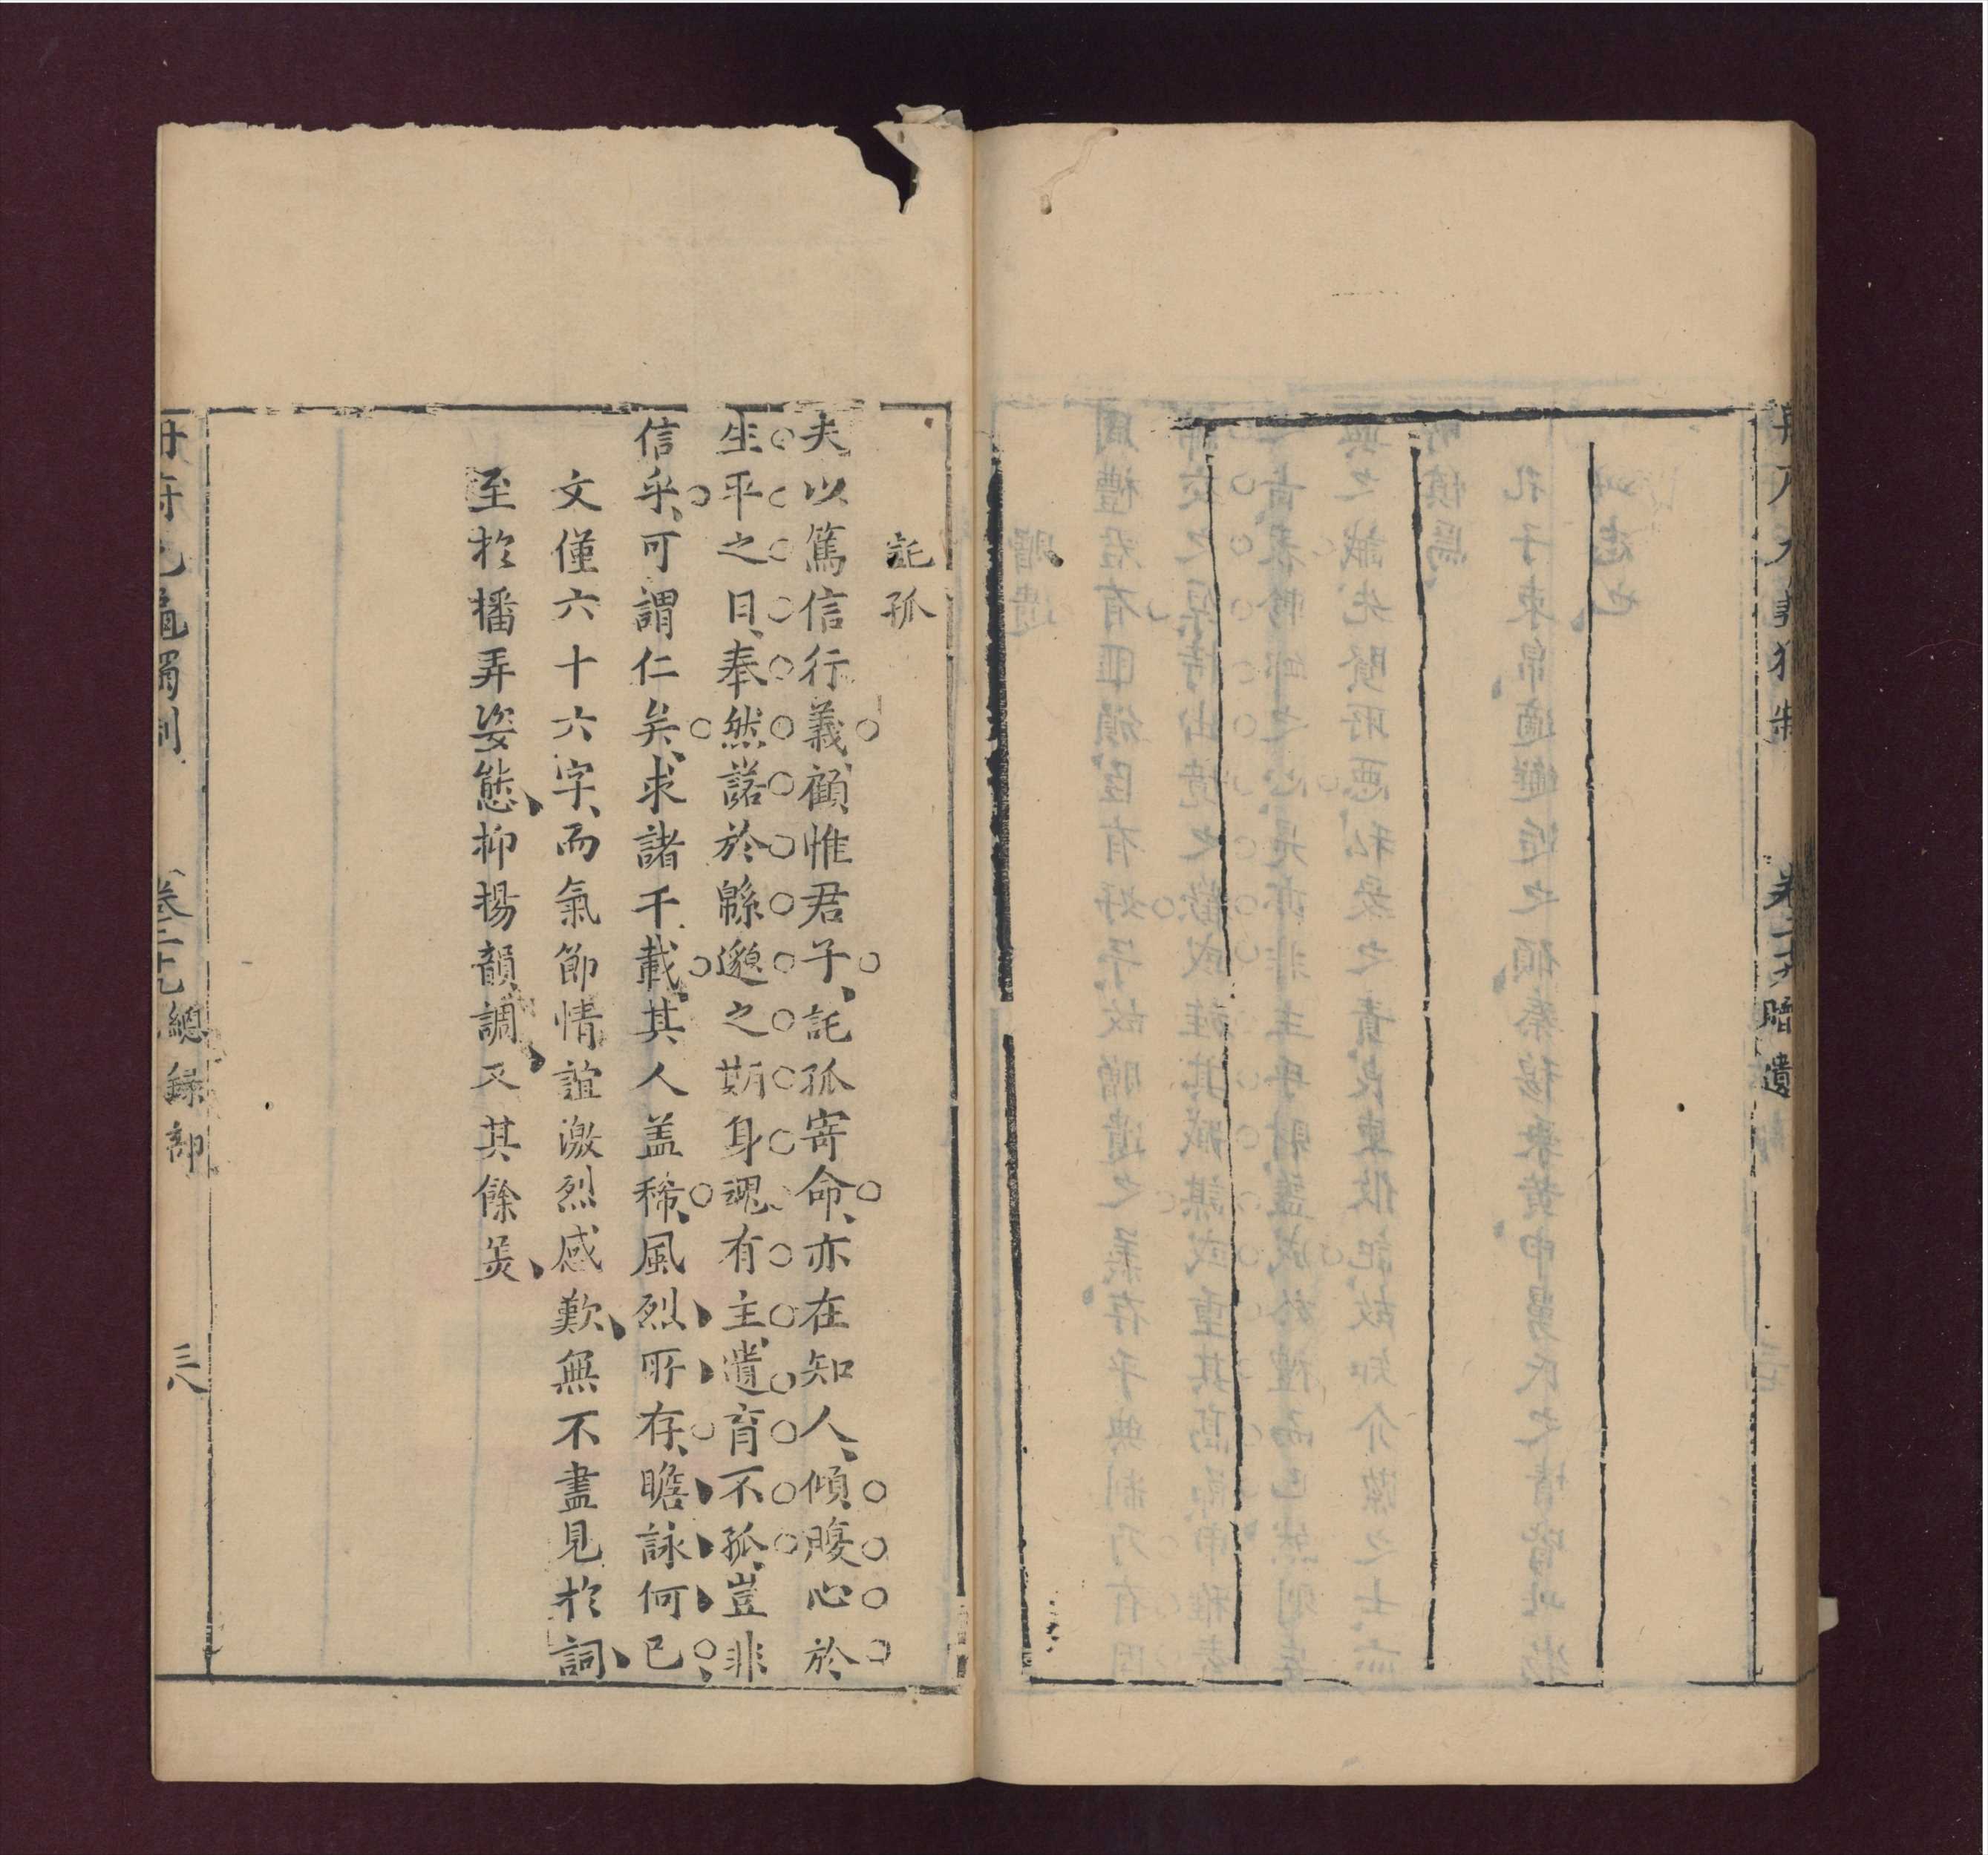 贈遺
託孤
夫以篤信行義、顧惟君子、託孤寄命、亦在知人、傾腹心於
生平之日、奉然諾於緜邈之期、身魂有主、遺育不孤、豈非
信乎、可謂仁矣、求諸千載、其人盖稀、風烈所存、瞻詠何已、
文僅六十六字、而氣節情誼激烈感歎、無不盡見於詞、
至於播弄姿態、抑揚韻調、又其餘美、
總錄部
三八